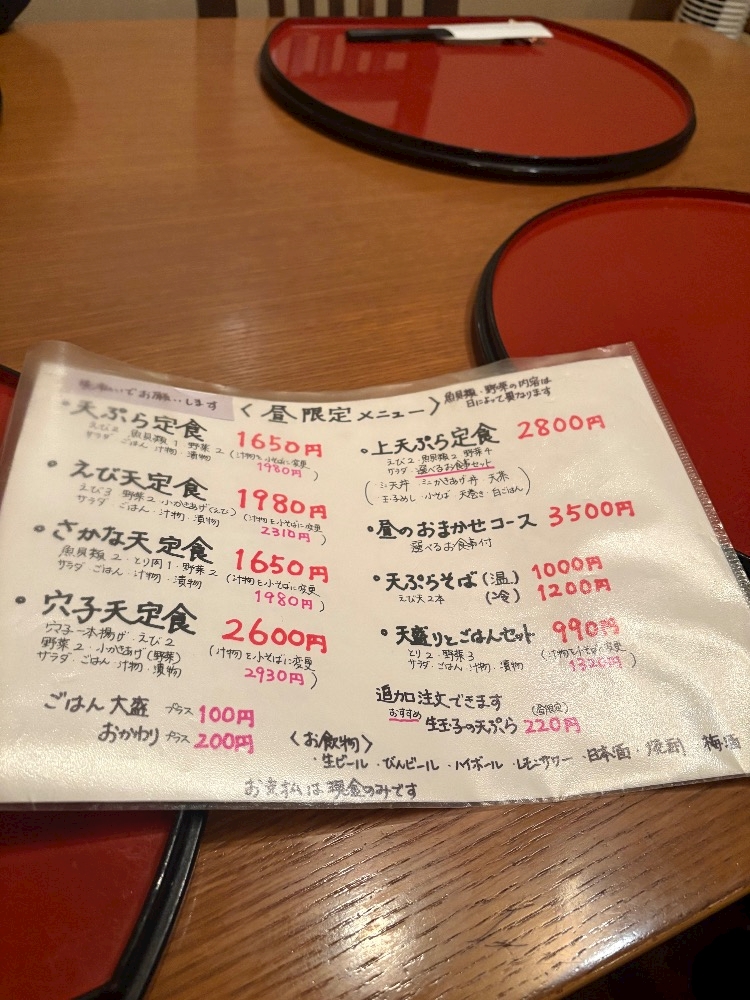 でお願いします
〈昼限定メニュー〉
魚貝類・野菜の内容は
日によって異なります
・天ぷら定食 1650円
えび2 魚貝類1 野菜2
サラダ ごはん 汁物 漬物
(汁物を小そばに変更
1980円)
・えび天定食 1980円
えび3 野菜2・小かきあげ(えび)
サラダ・ごはん・汁物・漬物
(汁物を小そばに変更
2310円)
・さかな天定食 1650円
魚貝類2・とり肉1・野菜2
サラダ・ごはん・汁物・漬物
(汁物を小そばに変更
1980円)
・穴子天定食 2600円
穴子一本揚げ・えび2
野菜2・小かきあげ(野菜)
サラダ・ごはん・汁物・漬物
(汁物を小そばに変更
2930円)
ごはん 大盛 プラス 100円
おかわり プラス 200円
・上天ぷら定食 2800円
えび2・魚貝類2・野菜4
サラダ・選べるお食事セット
(ミニ天丼 ミニかきあげ丼 天茶
玉子めし・小そば 天巻き・白ごはん)
・昼のおまかせコース 3500円
選べるお食事付
・天ぷらそば (温) 1000円
えび天2本 (冷) 1200円
・天盛りとごはんセット 990円
とり2・野菜3
サラダ・ごはん 汁物・漬物
(汁物を小そばに変更
1320円)
追加注文できます
おすすめ 生玉子の天ぷら (昼限定) 220円
〈お飲物〉
・生ビール・びんビール・ハイボール・レモンサワー・日本酒・焼酎 梅酒
お支払は現金のみです